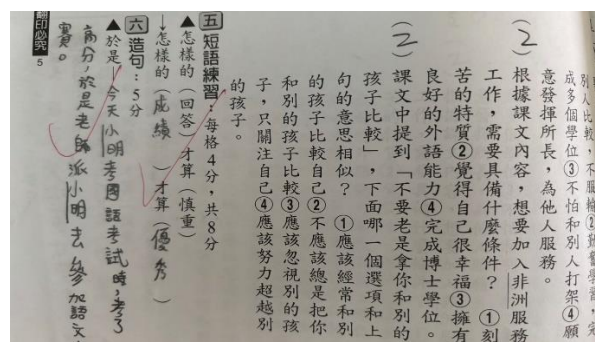 別人比較,不服輸②勤奮學習,完
成多個學位③不怕和別人打架④願
意發揮所長,為他人服務。
(2)根據課文內容,想要加入非洲服務
工作,需要具備什麼條件?①刻
苦的特質②覺得自己很幸福③擁有
良好的外語能力④完成博士學位。
(2)課文中提到「不要老是拿你和別的
孩子比較」,下面哪一個選項和上
句的意思相似?①應該經常和別
的孩子比較自己②不應該總是把你
和別的孩子比較③應該忽視別的孩
子,只關注自己④應該努力超越別
的孩子。
五 短語練習:每格4分,共8分
▲怎樣的(回答)才算(慎重)
→怎樣的(成績)才算(優秀)
六 造句:5分
▲於是→今天小明考國語考試時,考了
高分,於是老師派小明去參加語文
賽。
翻印必究 5